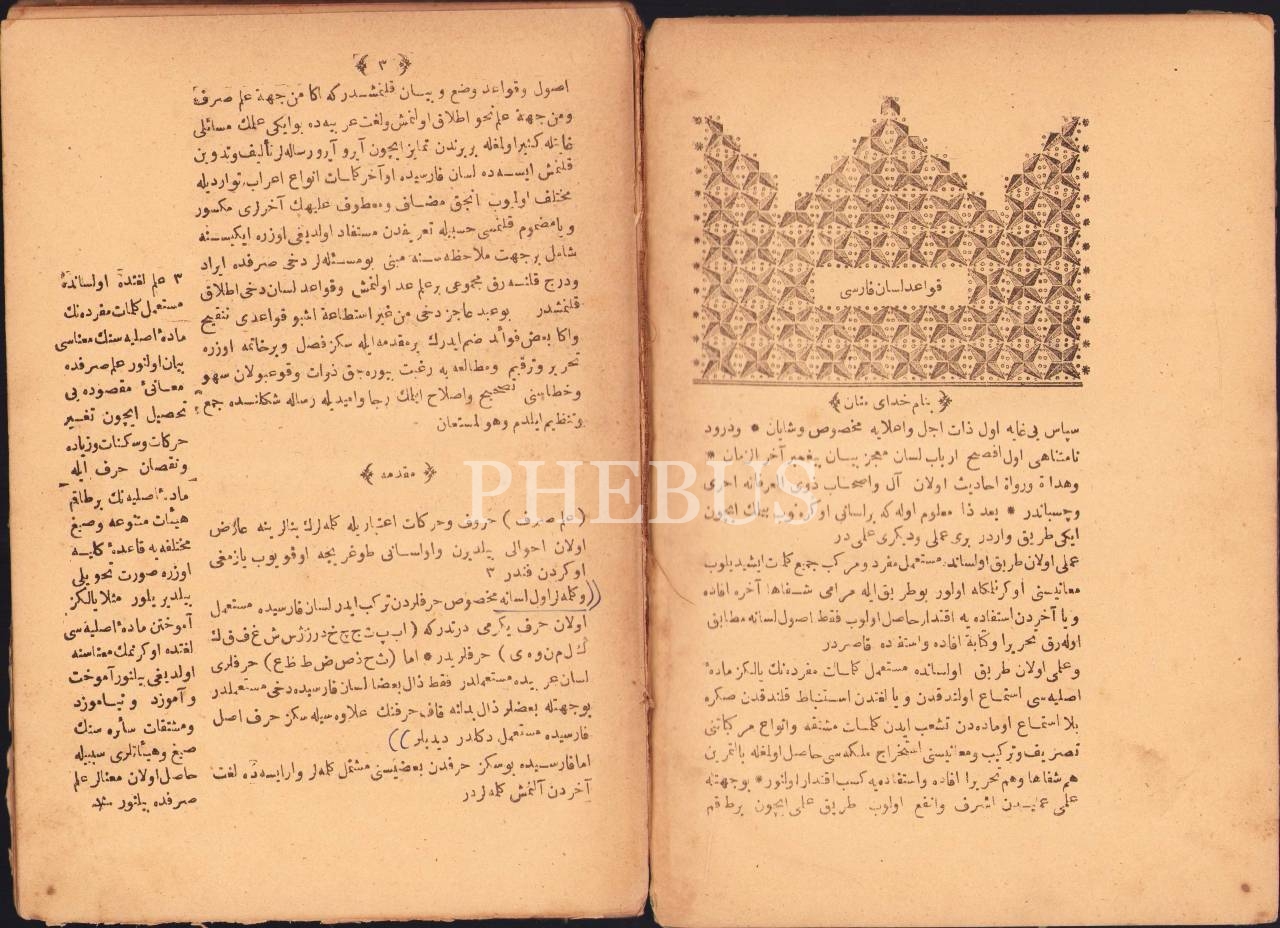 قواعد لسان فارسی
بنام خدای منان
سپاس بی غایه اول ذات اجل واعلایه مخصوص وشایان * ودرود
نامتناهی اول افصح ارباب لسان معجز بیسان پیغمبر آخر الزمان *
وهداة ورواة احادیث اولان آل واصحاب ذوی العرفانه احری
وچسباندر * بعد ذا معلوم اوله که بر لسانی اوکرەنوب بیلمك ایچون
ایکی طریق واردر بری عملی ودیکری علمی در
عملی اولان طریق اولسانده مستعمل مفرد ومرکب جمیع کلمات ایشیدیلوب
معانیسنی اوکرنلمکله اولور بوطریق ایله مرامی شفاها آخره افاده
و یا آخردن استفاده یه اقتدار حاصل اولوب فقط اصول لسانه مطابق
اوله رق تحریرا وکتابة افاده واستفده قاصر در
وعلمی اولان طریق اولسانده مستعمل کلمات مفرده نك یالکز مادۀ
اصلیه سی استماع اولندقدن و یا لغتدن استنباط قلندقدن صکره
بلا استماع اوماده دن تشعب ایدن کلمات مشتقه وانواع مرکباتی
تصریف وترکیب ومعانیسنی استخراج ملکه سی حاصل اولمغله بالتمرین
هم شفاها وهم تحریرا افاده واستفاده یه کسب اقتدار اولنور * بوجهتله
علمی عملیدن اشرف وانفع اولوب طریق علمی ایچون بر طاقم
۳
اصول وقواعد وضع و بیان قلنمشدر که اکا من جهة علم صرف
ومن جهة علم نحو اطلاق اولنمش ولغت عربیه ده بوایکی علمك مسائلی
غایتله کثیر اولمغله بر برندن تمایز ایچون آیرو آیرو رساله لر تألیف وتدوین
قلنمش ایسه ده لسان فارسیده اواخر کلمات انواع اعراب توارديله
مختلف اولیوب انجق مضاف ومعطوف علیهك آخرلری مکسور
و یا مضموم قلنمسی حسبیله تعریفدن مستفاد اولدیغی اوزره ایکیسنه
شامل بر جهت ملاحظه سنه مبنی بومسئله لر دخی صرفده ایراد
ودرج قلنه رق مجموعی بر علم عد اولنمش وقواعد لسان دخی اطلاق
قلنمشدر بوعبد عاجز دخی من غیر استطاعة اشبو قواعدی تنقیح
واکا بعض فوائد ضم ایدرك بر مقدمه ایله سکز فصل و بر خاتمه اوزره
تحریر وترقیم ومطالعه یه رغبت بیوره جق ذوات وقوعبولان سهو
وخطاسنی تصحیح واصلاح ایلمك رجا وامیدیله رساله شکلنده جمع
وتنظیم ایلدم وهو المستعان
مقدمه
(علم صرف) حروف وحرکات اعتباریله کله لرك بنالرینه عارض
اولان احوالی بیلدیرن واولسانی طوغریجه اوقویوب یازمغی
اوکردن فندر ۳
وکله لر اول لسانه مخصوص حرفلردن ترکب ایدر لسان فارسیده مستعمل
اولان حرف یکرمی درتدر که (اب پ ت ج چ خ د ر ز ژ س ش غ ف ق ك
گ ل م ن و ه ی) حرفلریدر * اما (ث ح ذ ص ض ط ظ ع) حرفلری
لسان عربیده مستعملدر فقط ذال بعضا لسان فارسیده دخی مستعملدر
بوجهتله بعضلر ذال بدلنه قاف حرفنك علاوه سیله سکز حرف اصل
فارسیده مستعمل دکلدر دیدیلر
اما فارسیده بوسکز حرفدن بعضیسنی مشتمل کله لر وار ایسه ده لغت
آخردن آلنمش کله لردر
۳ علم لغتده اولسانده
مستعمل کلمات مفرده نك
مادۀ اصلیه سنك معناسی
بیان اولنور علم صرفده
معانیٔ مقصوده یی
تحصیل ایچون تغییر
حرکات وسکنات وزیاده
ونقصان حرف ایله
مادۀ اصلیه نك بر طاقم
هیئات متنوعه وصیغ
مختلفه یه قاعدۀ کلیه
اوزره صورت تحویلی
بیلدیریلور مثلا یالکز
آموختن مادۀ اصلیه سی
لغتده اوکرنمك معناسنه
اولدیغی بیلنور آموخت
وآموزد و نیاموزد
ومشتقات سائره سنك
صیغ وهیئاتلری سببیله
حاصل اولان معنالر علم
صرفده بیلنور منه
PHEBUS